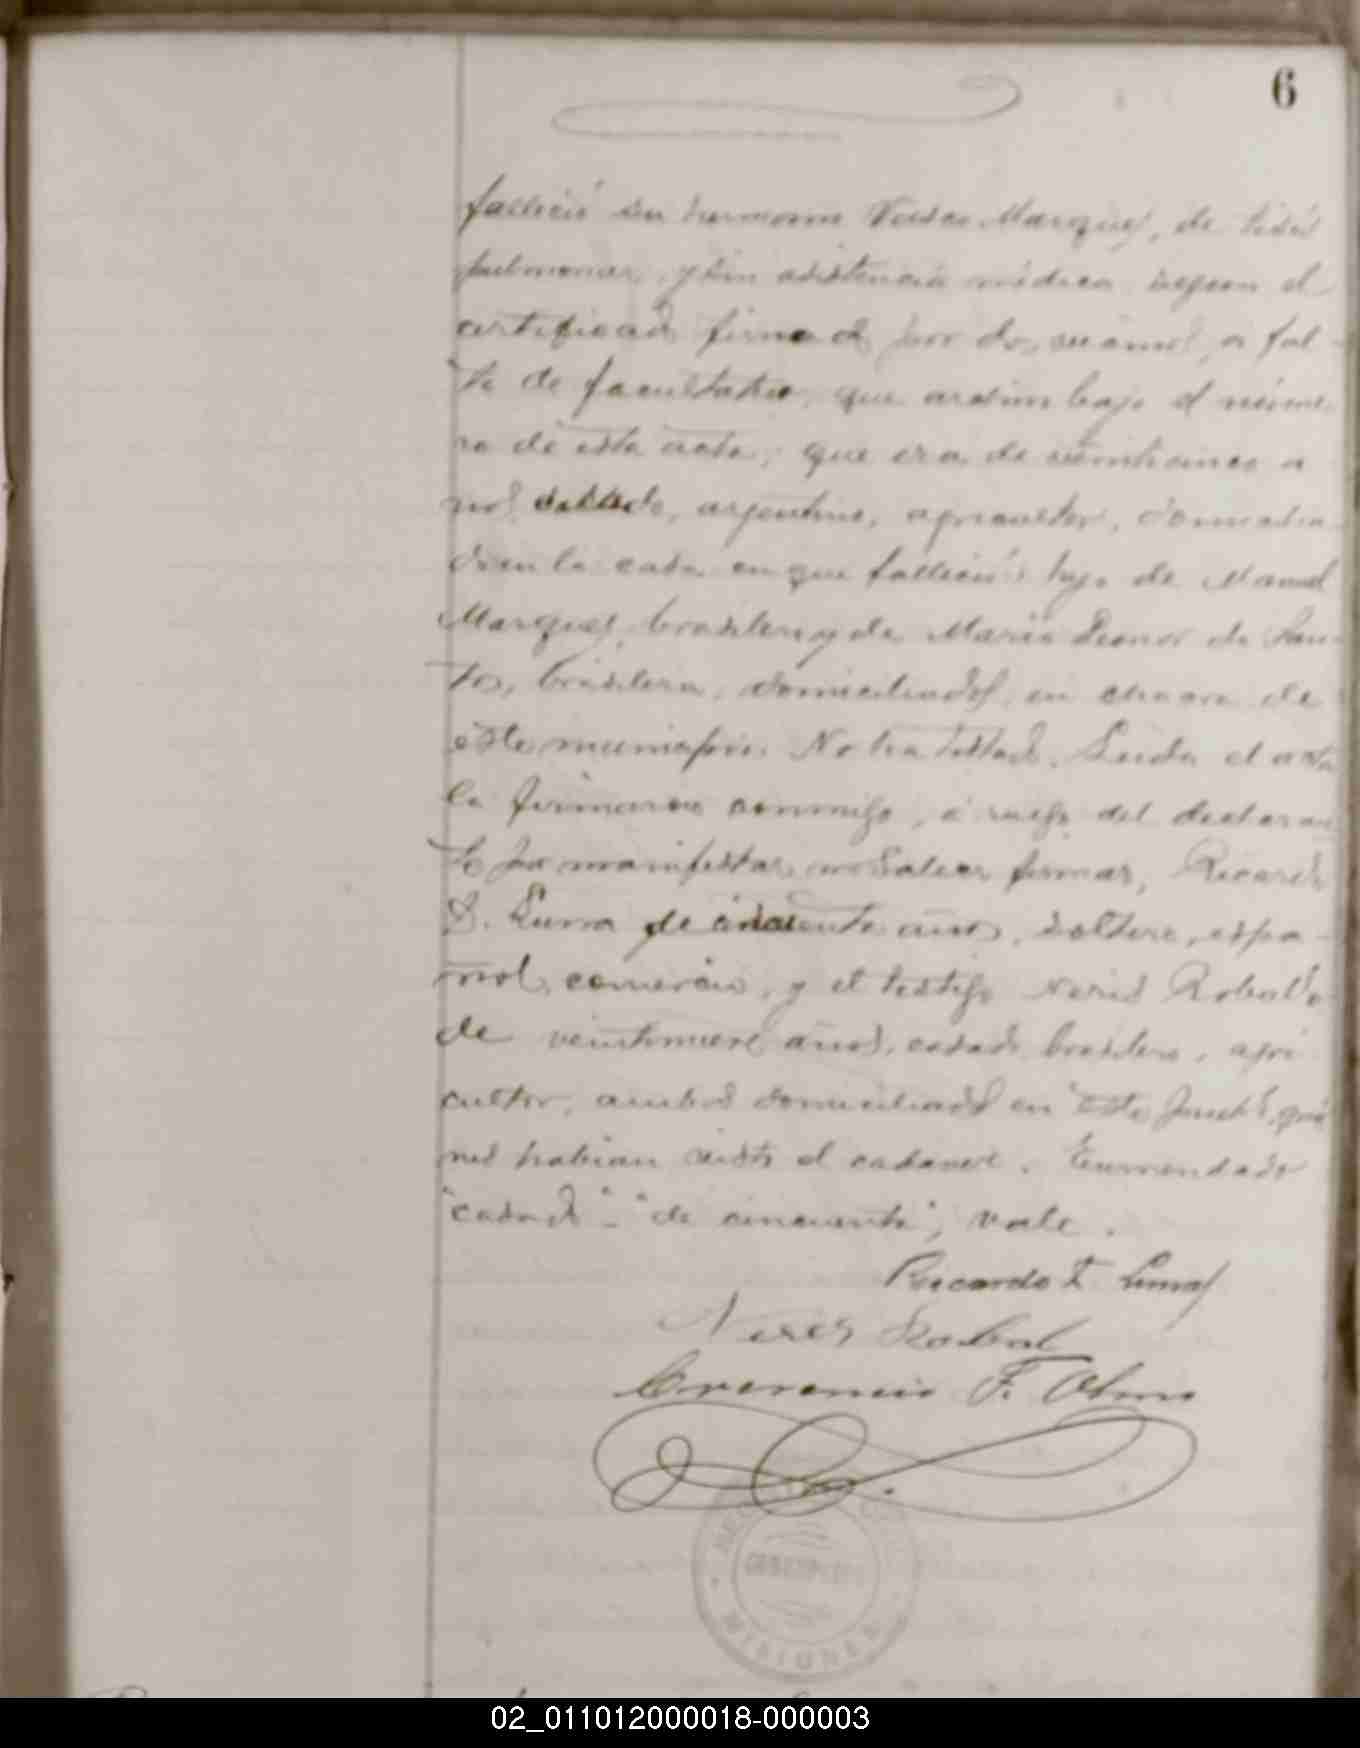 6
falleció su hermano Marques, de tisis
pulmonar, y sin asistencia médica segun el
certificado firmado por dos vecinos, a fal-
ta de facultativo, que archivo bajo el núme-
ro de esta acta; que era de veinticinco a
ños, argentino, agricultor, domicilia-
do en la casa en que falleció: hijo de Manuel
Marques, brasilero y de Maria Leonor de San-
tos, brasilera, domiciliados en chacra de
este municipio. No ha testado. Leida el acta
la firmaron conmigo, á ruego del declaran
te por manifestar no saber firmar, Ricardo
Luna de cincuenta años, soltero, espa-
ñol, comercio, y el testigo Robal
de veintinueve años, casado brasilero, agri
cultor, ambos domiciliados en este quie
nes habian visto el cadaver. Enmendado
"casado" - "de cincuenta", vale.
Ricardo Luna
Neres Robal
F. Olmo
MISIONES
02_011012000018-000003